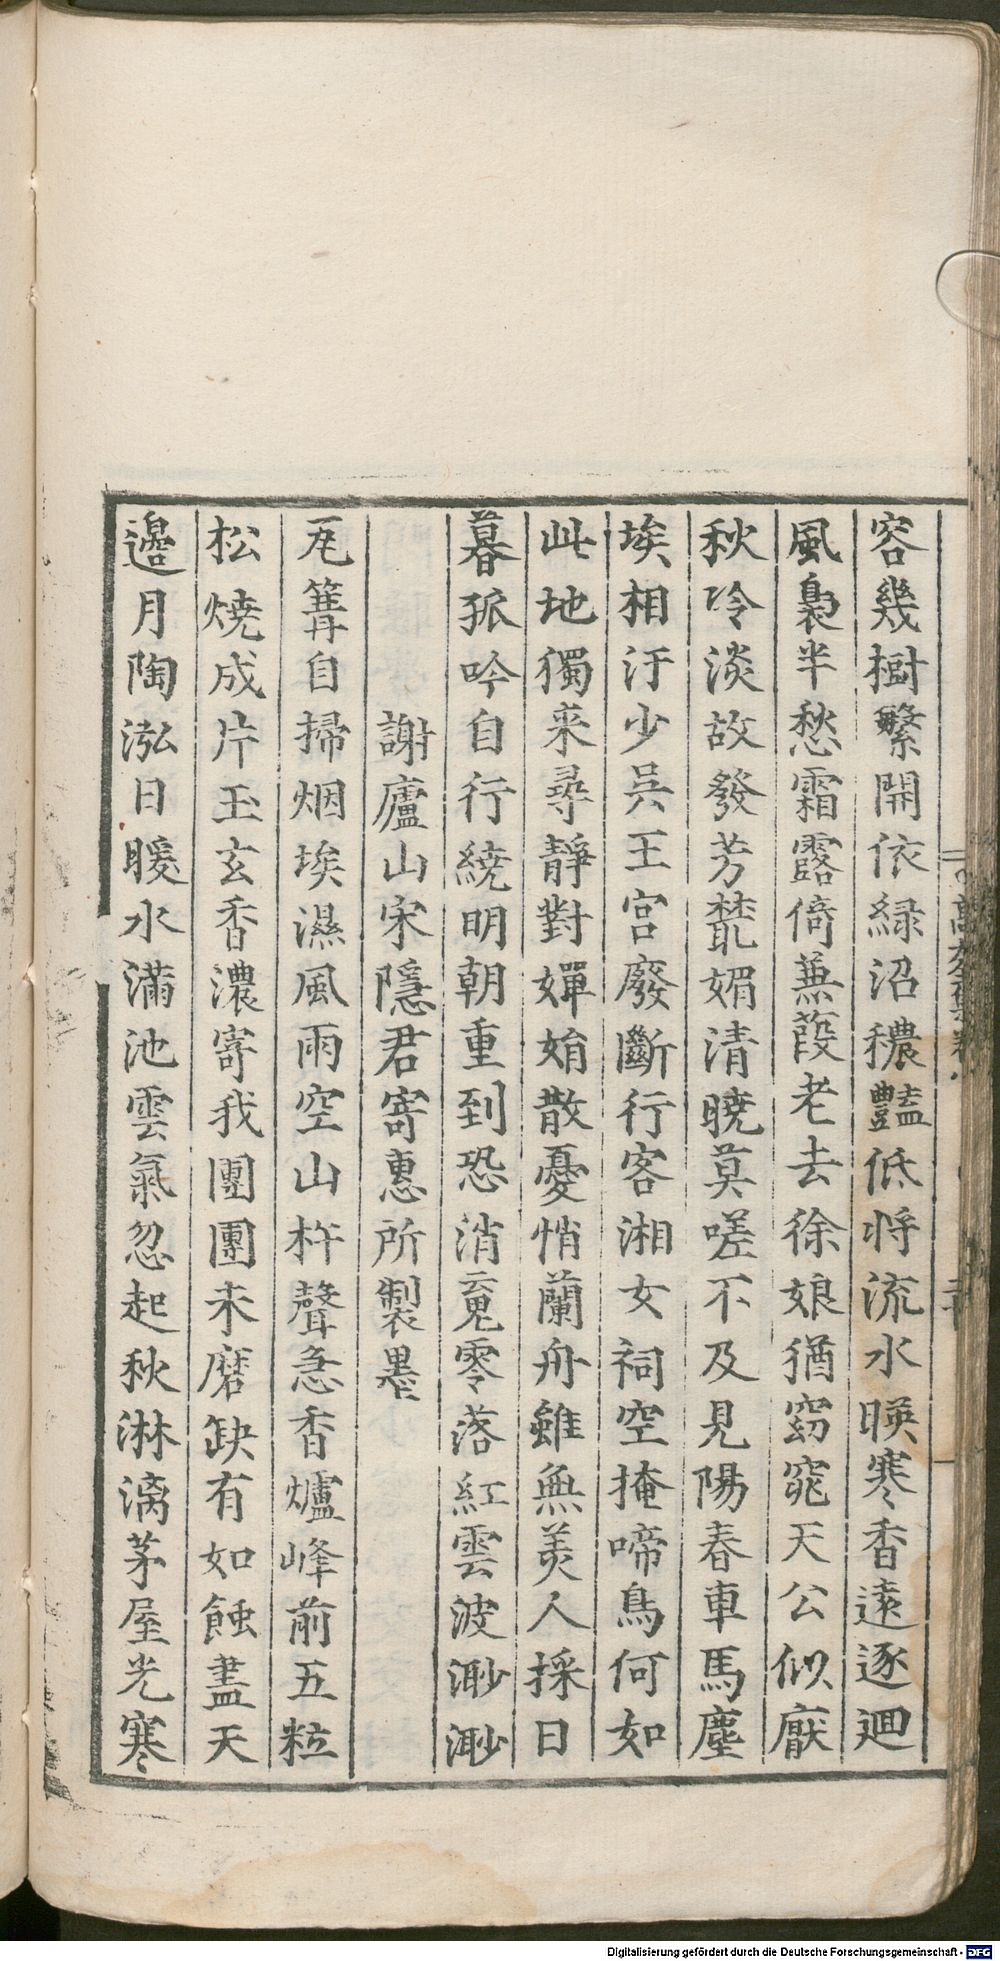 容幾樹繁開依緑沼穠豔低将流水暎寒香遠逐廻
風裊半愁霜露倚蒹葭老去徐娘猶窈窕天公似厭
秋冷淡故發芳藂媚清曉莫嗟不及見陽春車馬塵
埃相汙少吳王宮廢斷行客湘女祠空掩啼鳥何如
此地獨來尋靜對嬋娟散憂悄蘭舟雖無美人採日
暮孤吟自行繞明朝重到恐消䰟零落紅雲波渺渺
謝廬山宋隱君寄惠所製墨
瓦篝自掃烟埃濕風雨空山杵聲急香爐峰前五粒
松燒成片玉玄香濃寄我團團未磨缺有如蝕盡天
邊月陶泓日暖水滿池雲氣忽起秋淋漓茅屋光寒
高太史集卷八
Digitalisierung gefördert durch die Deutsche Forschungsgemeinschaft - DFG